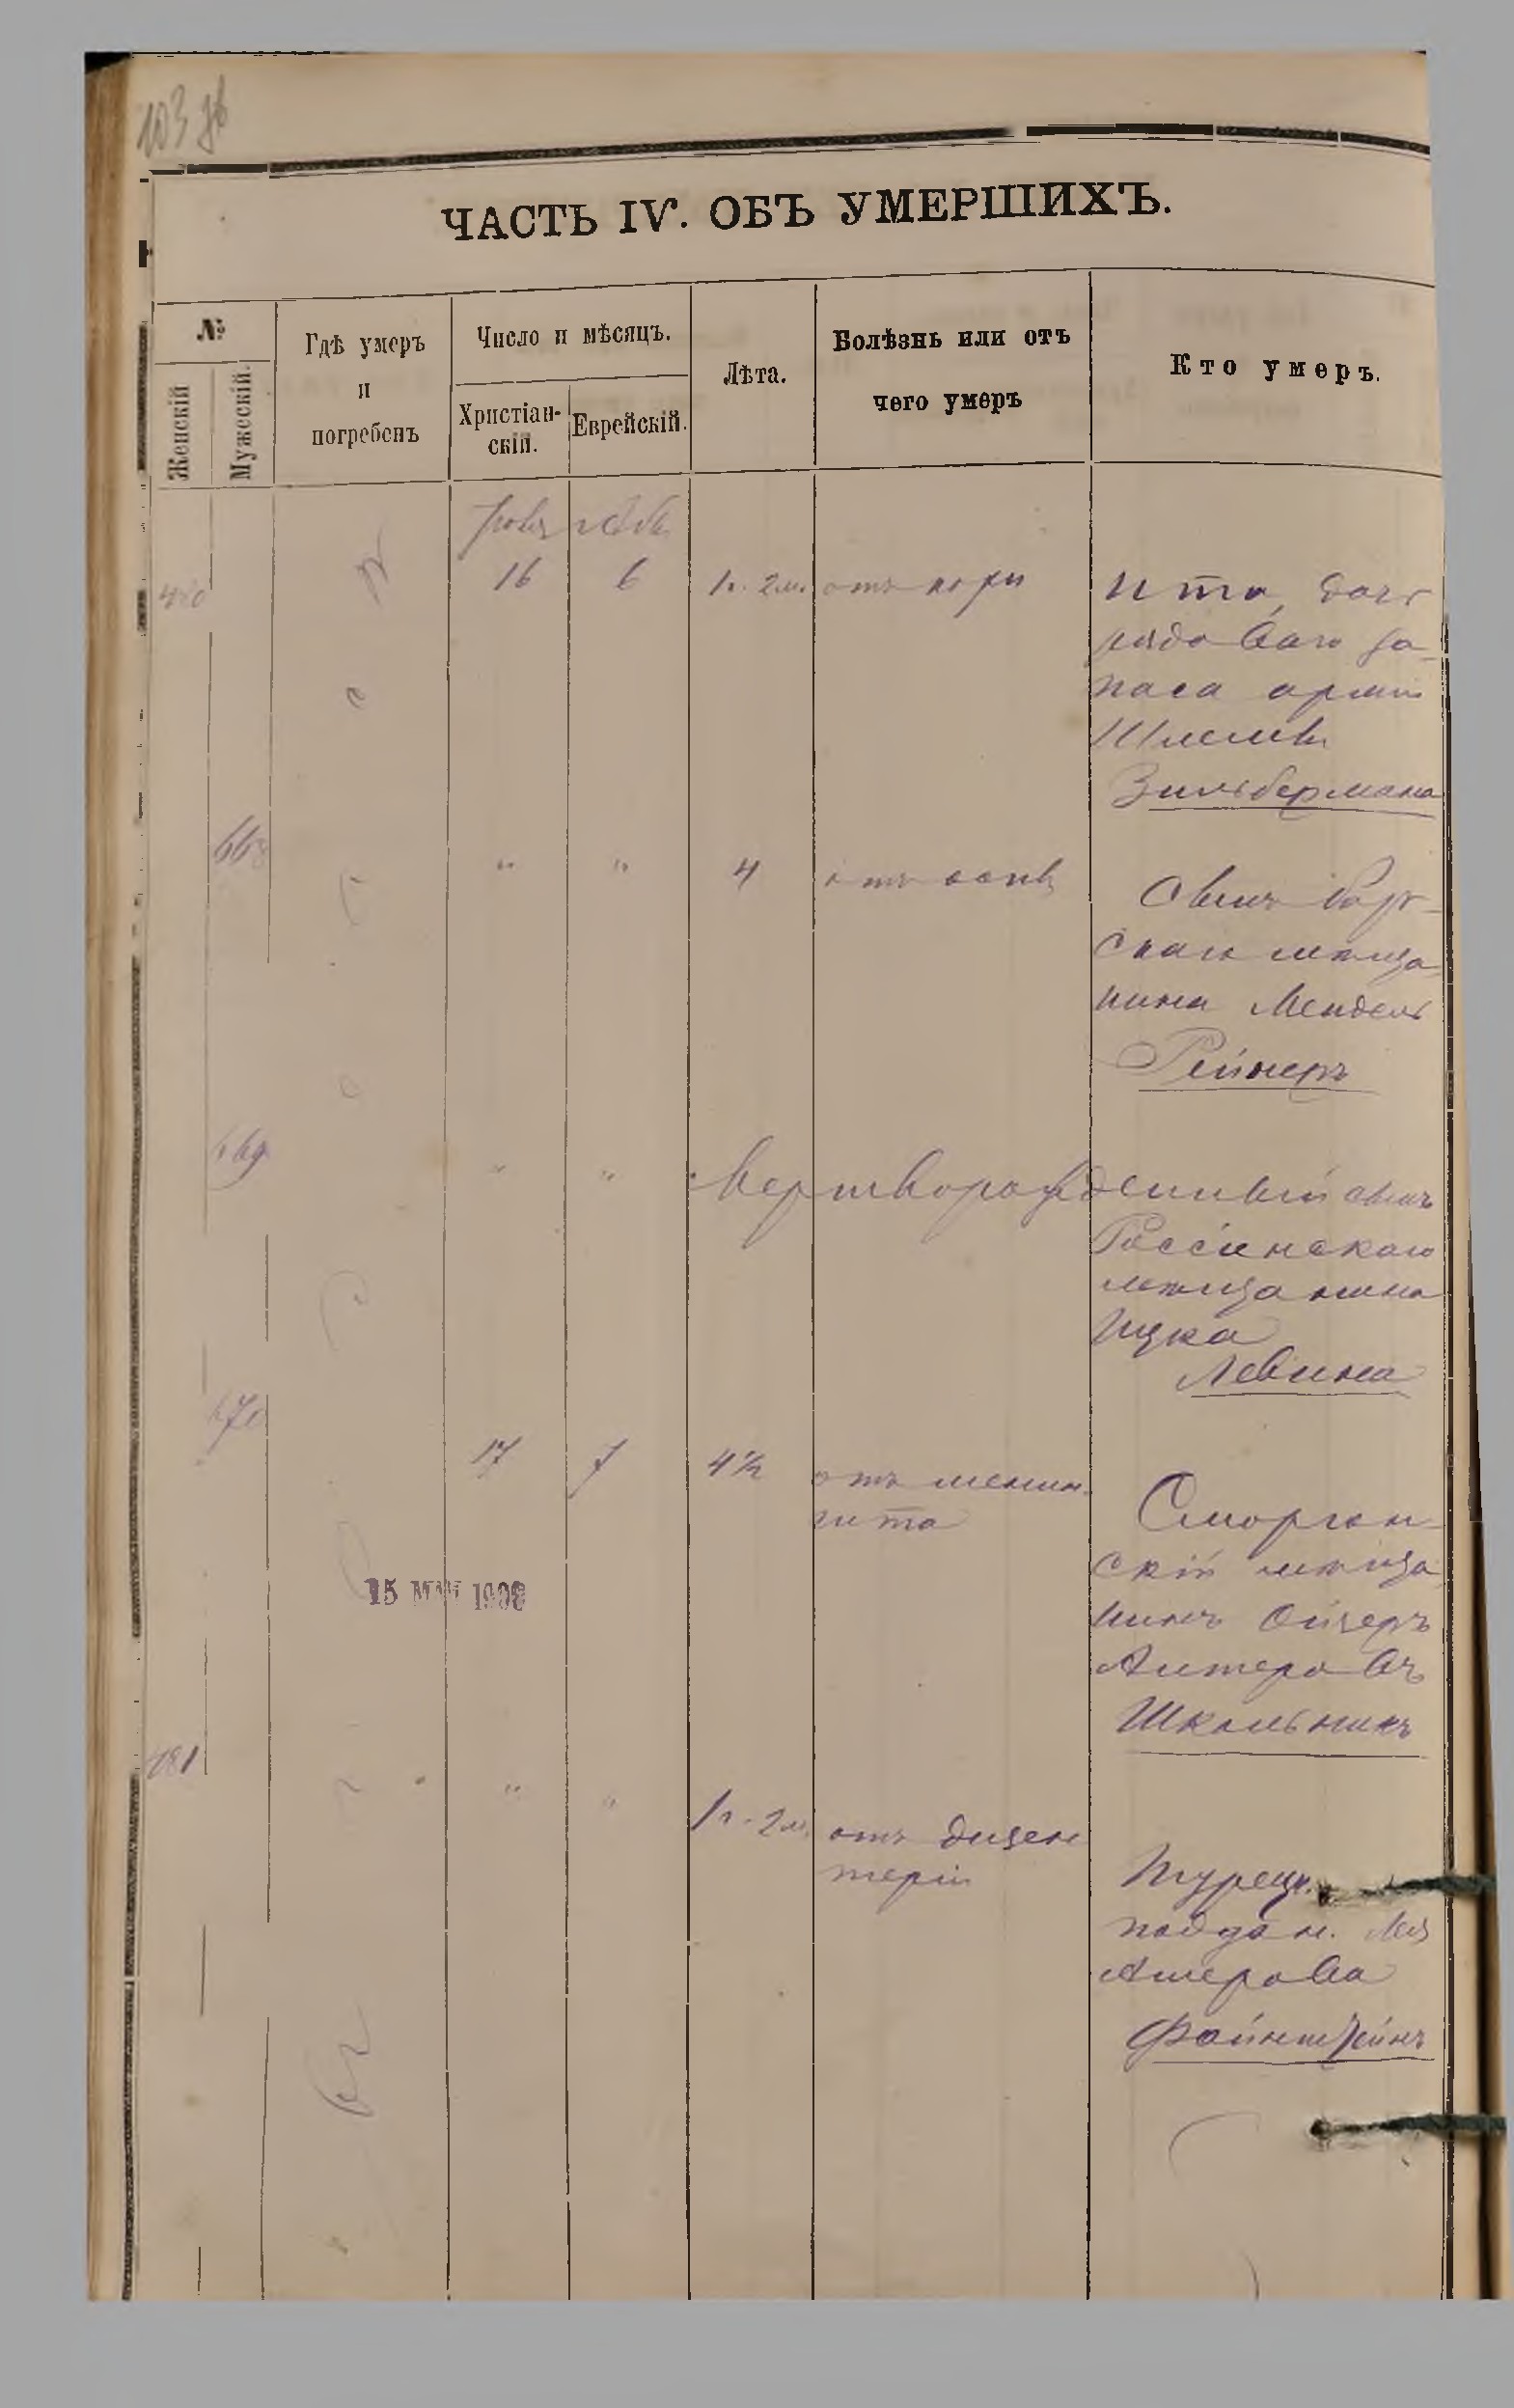 103 об
ЧАСТЬ IV. ОБЪ УМЕРШИХЪ.
№
Женскій
Мужескій.
Гдѣ умеръ
и
погребенъ
Число и мѣсяцъ.
Христіан-
скій.
Еврейскій.
Лѣта.
Болѣзнь или отъ
чего умеръ
Кто умеръ.
480
16
6
1 г. 2 м.
отъ кори
Ита, дочь
рядоваго за-
паса арміи
Шлемы
Зильбермана
668
"
"
4
отъ оспы
Сынъ
скаго мѣща
нина Мендель
Рейнеръ
669
"
"
Мертворожденный сынъ
Россіенскаго
мѣщанина
Ицка
Левина
670
17
7
4½
отъ менин-
гита
Сморгон-
скій мѣща
нинъ Ойзеръ
Алтеровъ
Школьникъ
15 МАЙ 1908
481
"
"
1 г. 2 м.
отъ дизен
теріи
Турецк.
поддан.
Ашерова
Файнштейнъ